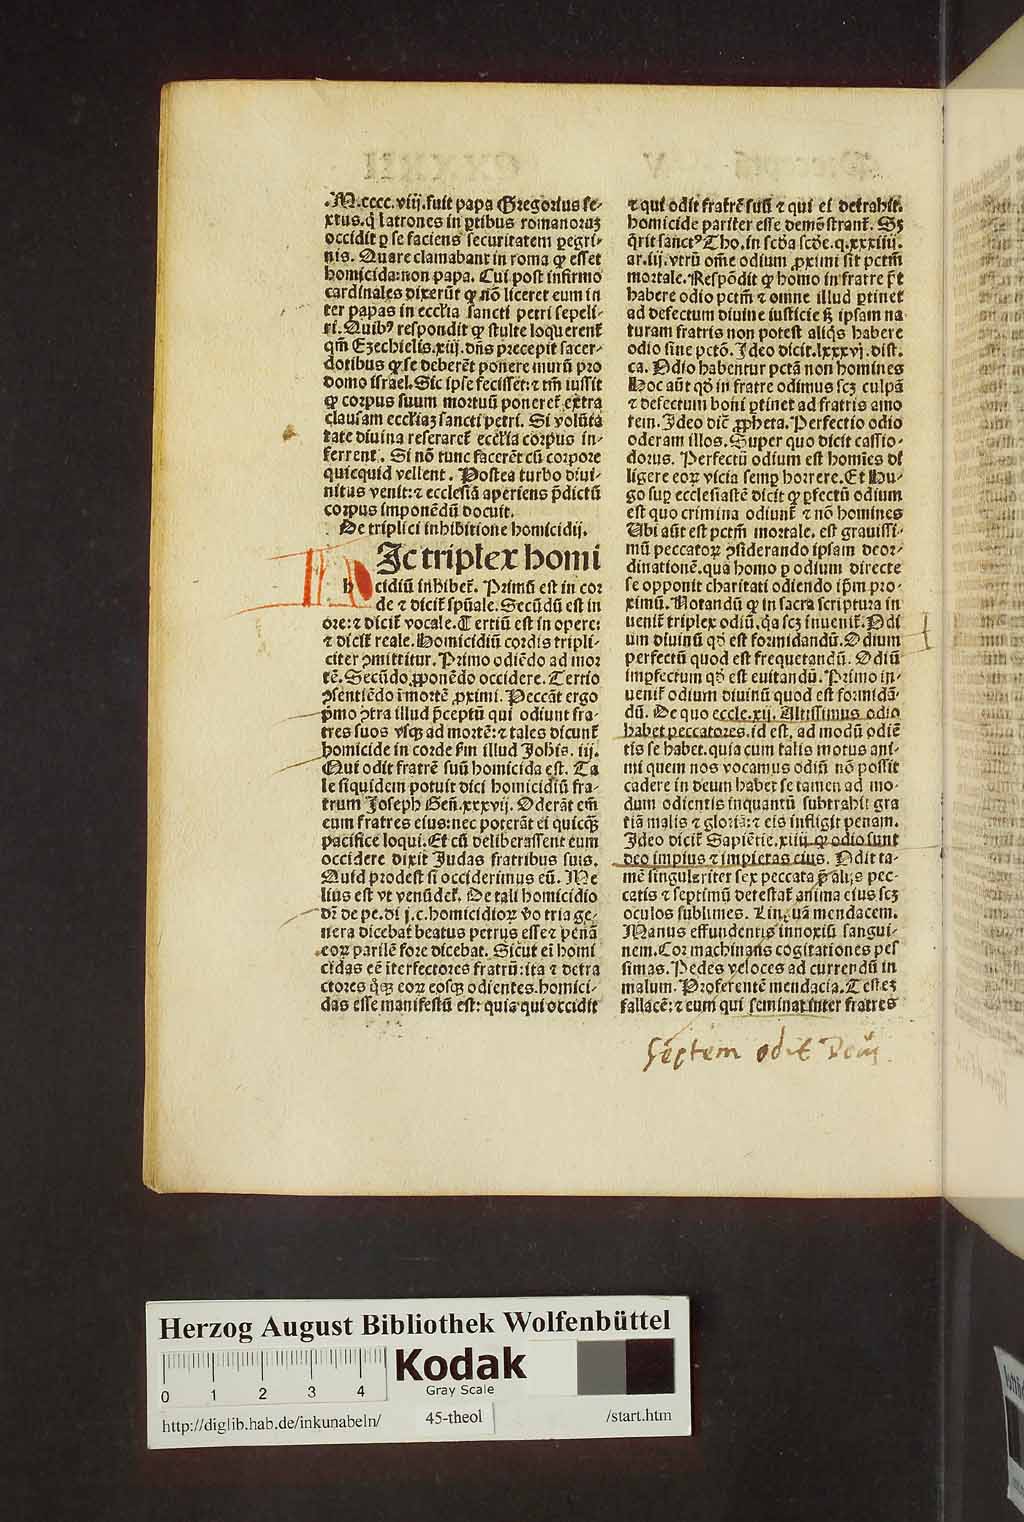 .M.cccc.viij.fuit papa Gregorius se-
xtus.q̇ latrones in ꝑtibus romanoruꝫ
occidit ꝑ se faciens securitatem ꝑegri-
nis. Quare clamabant in roma ꝙ esset
homicida:non papa. Cui post infirmo
cardinales dixerūt ꝙ nō liceret eum in
ter papas in eccl'ia sancti petri sepeli-
ri. Quibꝰ respondit ꝙ stulte loquerent̃
qm̄ Ezechielis.xiij.dn̄s precepit sacer-
dotibus ꝙ se deberēt ponere murū pro
domo israel. Sic ipse fecisset:⁊ tm̄ iussit
ꝙ corpus suum mortuū poneret̃ extra
clausam eccl'iaꝫ sancti petri. Si volūta
tate diuina reseraret̃ eccl'ia corpus in-
ferrent̃. Si nō tunc facerēt cū corpore
quicquid vellent. Postea turbo diui-
nitus venit:⁊ ecclesiā aperiens p̄dictū
corpus imponēdū docuit.
De triplici inhibitione homicidij.
h Ic triplex homi
cidiū inhibet̃. Primū est in cor
de ⁊ dicit̃ sp̄uale. Secūdū est in
ore:⁊ dicit̃ vocale. Tertiū est in opere:
⁊ dicit̃ reale. Homicidiū cordis tripli-
citer ꝯmittitur. Primo odiēdo ad mor
tē. Secūdo ꝓponēdo occidere. Tertio
ꝯsentiēdo ī mortē ꝓximi. Peccāt ergo
p̄mo ꝯtra illud p̄ceptū qui odiunt fra-
tres suos vsqꝫ ad mortē:⁊ tales dicunt̃
homicide in corde ſm illud Johis. iij.
Qui odit fratrē suū homicida est. Ta
le siquidem potuit dici homicidiū fra-
trum Joseph Gen̄.xxxvij. Oderāt em̄
eum fratres eius:nec poterāt ei quicqꝫ
pacifice loqui. Et cū deliberassent eum
occidere dixit Judas fratribus suis.
Quid prodest si occiderimus eū. Me
lius est vt venūdet̃. De tali homicidio
dr̄ de pe. di j.c. homicidioꝝ v̊o tria ge-
nera dicebat beatus petrus esse ⁊ penā
eoꝝ parilē fore dicebat. Sicut em̄ homi
cidas eē īterfectores fratrū:ita ⁊ detra
ctores q̄qꝫ eoꝝ eosqꝫ odientes.homici-
das esse manifestū est: quia qui occidit
⁊ qui odit fratrē suū ⁊ qui ei detrahit.
homicide pariter esse demōstrant̃. Sꝫ
q̄rit sanctꝰ Tho. in sc'da sc'de.q.xxxiiij.
ar.iij. vtrū om̄e odium ꝓximi sit pctm̄
mortale. Respōdit ꝙ homo in fratre p̄t
habere odio pctm̄ ⁊ omne illud ꝑtinet
ad defectum diuine iusticie sꝫ ipsam na
turam fratris non potest aliq̇s habere
odio sine pctō. Jdeo dicit.lxxxvj.dist.
ca. Odio habentur pctā non homines
Hoc aūt qḋ in fratre odimus scꝫ culpā
⁊ defectum boni ꝑtinet ad fratris amo
rem. Jdeo dic̄ ꝓpheta. Perfectio odio
oderam illos. Super quo dicit cassio-
dorus. Perfectū odium est homīes di
ligere eoꝝ vicia semꝑ horrere. Et Hu-
go suꝑ ecclesiastē dicit ꝙ ꝑfectū odium
est quo crimina odiunt̃ ⁊ nō homines
Ubi aūt est pctm̄ mortale. est grauissi-
mū peccatoꝝ ꝯsiderando ipsam deor-
dinationē.qua homo ꝑ odium directe
se opponit charitati odiendo ip̄m pro-
ximū. Notandū ꝙ in sacra scriptura in
uenit̃ triplex odiū. q̇a scꝫ inuenit̃. Odi
um diuinū qḋ est formidandū. Odium
perfectū quod est frequetandū. Odiū
imꝑfectum qḋ est euitandū. Primo in-
uenit̃ odium diuinū quod est formidā-
dū. De quo eccle.xij. Altissimus odio
habet peccatores. id est. ad modū odiē
tis se habet. quia cum talis motus ani-
mi quem nos vocamus odiū nō possit
cadere in deum habet se tamen ad mo-
dum odientis inquantū subtrahit gra
tiā malis ⁊ gloriā:⁊ eis infligit penam.
Jdeo dicit̃ Sapiētie.xiiij ꝙ odio sunt
deo impius ⁊ impietas eius. Odit ta-
mē singulariter sex peccata p̄ alijs pec-
catis ⁊ septimū detestat̃ anima eius scꝫ
oculos sublimes. Linguā mendacem.
Manus effundentis innoxiū sangui-
nem. Cor machinans cogitationes pes
simas. Pedes veloces ad currendū in
malum. Proferentē mendacia. Testeꝫ
fallacē:⁊ eum qui seminat inter fratres
Septem odit Deus.
Herzog August Bibliothek Wolfenbüttel
0 1 2 3 4
Kodak
Gray Scale
http://diglib.hab.de/inkunabeln/ 45-theol /start.htm